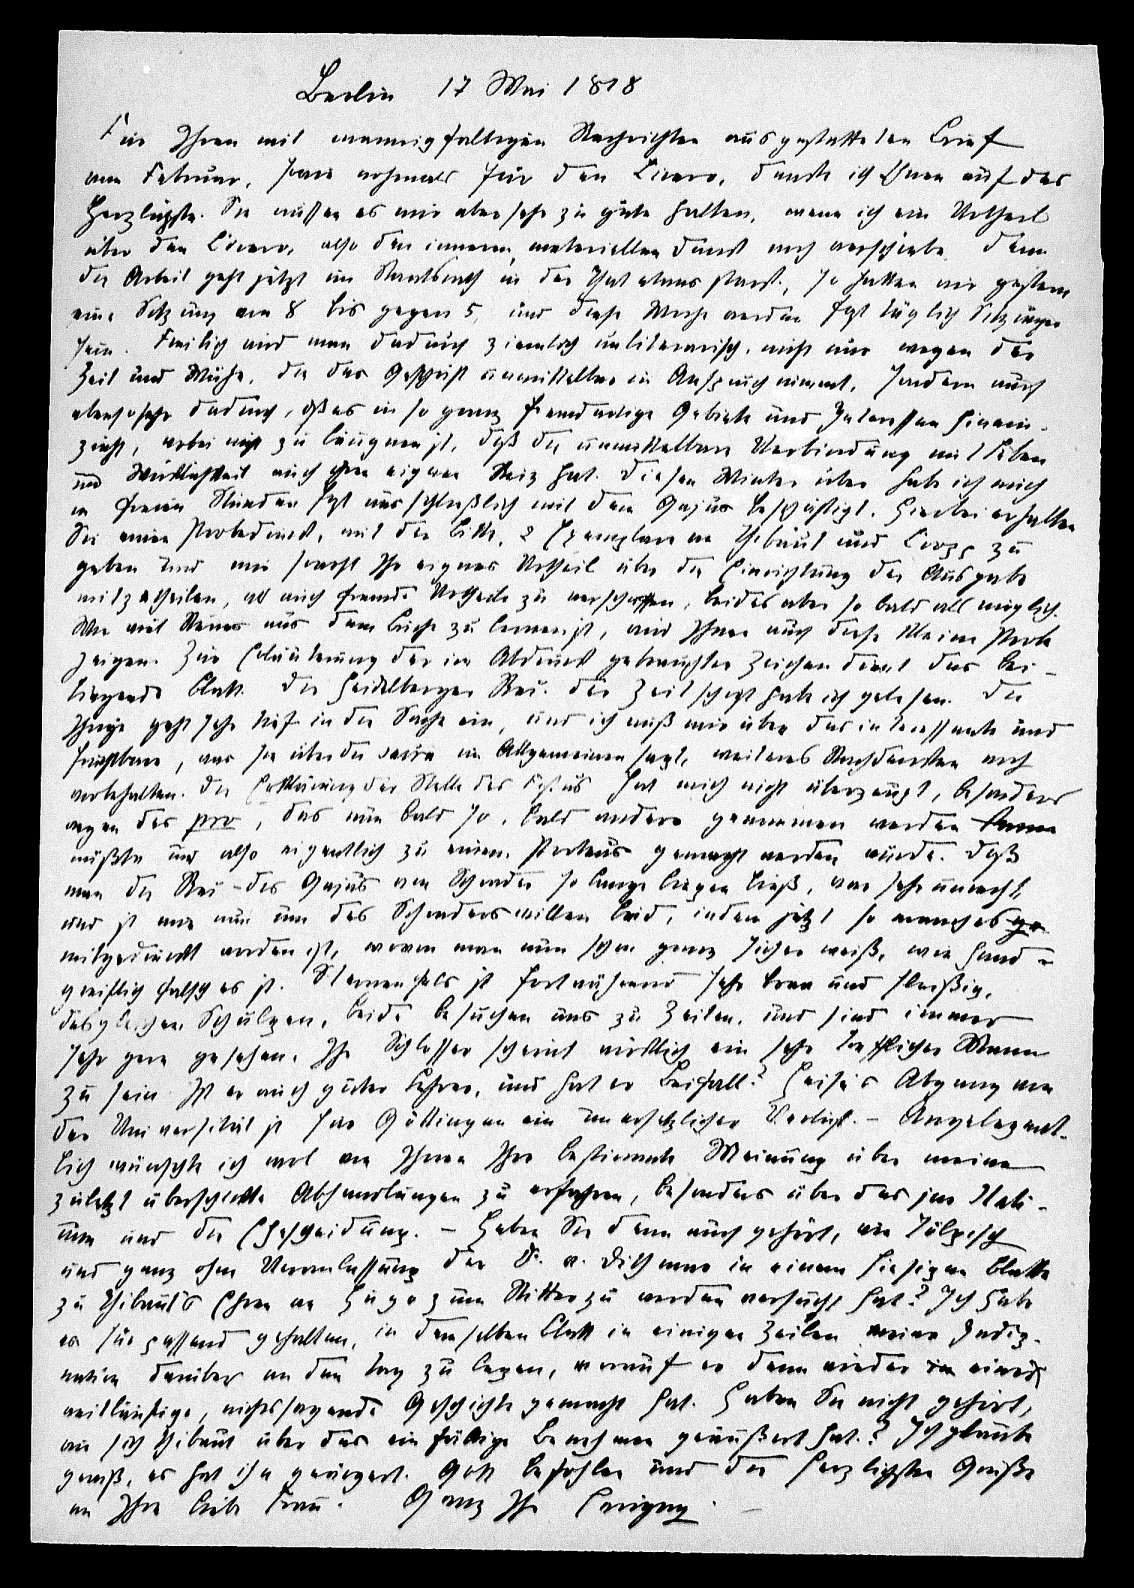 Berlin 17 Mai 1818
Für Ihren mit mannigfaltigen Nachrichten ausgestatteten Brief
vom Februar, sowie nochmals für den Cicero, danke ich Ihnen auf das
Herzlichste. Sie müssen es mir aber sehr zu gute halten, wenn ich ein Urtheil
über den Cicero, also den inneren, materiellen dünst noch verschiebe, denn
die Arbeit geht jetzt im Staatsrath in der That etwas stark, so hatten wir gestern
eine Sitzung von 8 bis gegen 5, und diese Woche werden fast täglich Sitzungen
seyn. Freilich wird man dadurch ziemlich unliterarisch, nicht nur wegen der
Zeit und Mühe, die das Geschäft unmittelbar in Anspruch nimmt, sondern auch
ebensosehr dadurch, daß es in so ganz fremdartige Gebiete und Interessen hinein-
zieht, wobei nicht zu läugnen ist, daß die unmittelbare Verbindung mit Leben
und Wirklichkeit auch ihren eignen Reiz hat. Diesen Winter über habe ich mich
in freien Stunden fast ausschließlich mit dem Gajus beschäftigt. Hierbei erhalten
Sie einen Probedruck, mit der Bitte, 2 Exemplare an Thibaut und Cropp zu
geben und mir sowohl Ihr eignes Urtheil über die Einrichtung der Ausgabe
mitzutheilen, als auch fremde Urtheile zu verschaffen, beides aber so bald als möglich.
Wie viel Neues aus dem Buche zu lernen ist, wird Ihnen auch diese kleine Probe
zeigen. Zur Erläuterung der im Abdruck gebrauchten Zeichen dient das bei-
liegende Blatt. Die Heidelberger Rec. der Zeitschrift habe ich gelesen. Die
Ihrige geht sehr tief in die Sache ein, und ich muß mir über das interessante und
fruchtbare, was sie über die sacra im Allgemeinen sagt, weiteres Nachdenken noch
vorbehalten. Die Erklärung der Stelle des Festus hat mich nicht überzeugt, besonders
wegen des pro, das nun bald so, bald anders genommen werden
müßte und also eigentlich zu einem Proteus gemacht werden würde. Daß
man die Rec. des Gajus von Schrader so lange liegen ließ, war sehr unrecht,
und ist mir nun um des Schraders willen leid, indem jetzt so manches
mitgedruckt worden ist, wovon man nun schon ganz sicher weiß, wie hand-
greiflich falsch es ist. Sternenfels ist fortwährend sehr brav und fleißig,
desgleichen Schulzen, beide besuchen uns zu Zeiten, und sind immer
sehr gern gesehen. Ihr Schlosser scheint wirklich ein sehr trefflicher Mann
zu sein. Ist er auch guter Lehrer, und hat er Beifall? Heise's Abgang von
der Universität ist für Göttingen ein unersetzlicher Verlust. – Angelegent-
lich wünschte ich wol von Ihnen Ihre bestimmte Meinung über meine
zuletzt überschickte Abhandlungen zu erfahren, besonders über das jus Itali-
cum und die Ehescheidung. – Haben Sie denn auch gehört, wie tölpisch
und ganz ohne Veranlassung der H. v. Dithmar in einem hiesigen Blatte
zu Thibaut's Ehren an Hugo zum Ritter zu werden versucht hat? Ich habe
es für passend gehalten, in demselben Blatt in einigen Zeilen meine Indig-
nation darüber an den Tag zu legen, worauf er denn wieder eine
weitläuftige, nichtssagende Geschichte gemacht hat. Haben Sie nicht gehört,
wie sich Thibaut über das einfältige Benehmen geäußert hat? Ich glaube
gewiß, es hat ihn geärgert. Gott befohlen und die herzlichsten Grüße
an Ihre liebe Frau. Ganz Ihr Savigny.